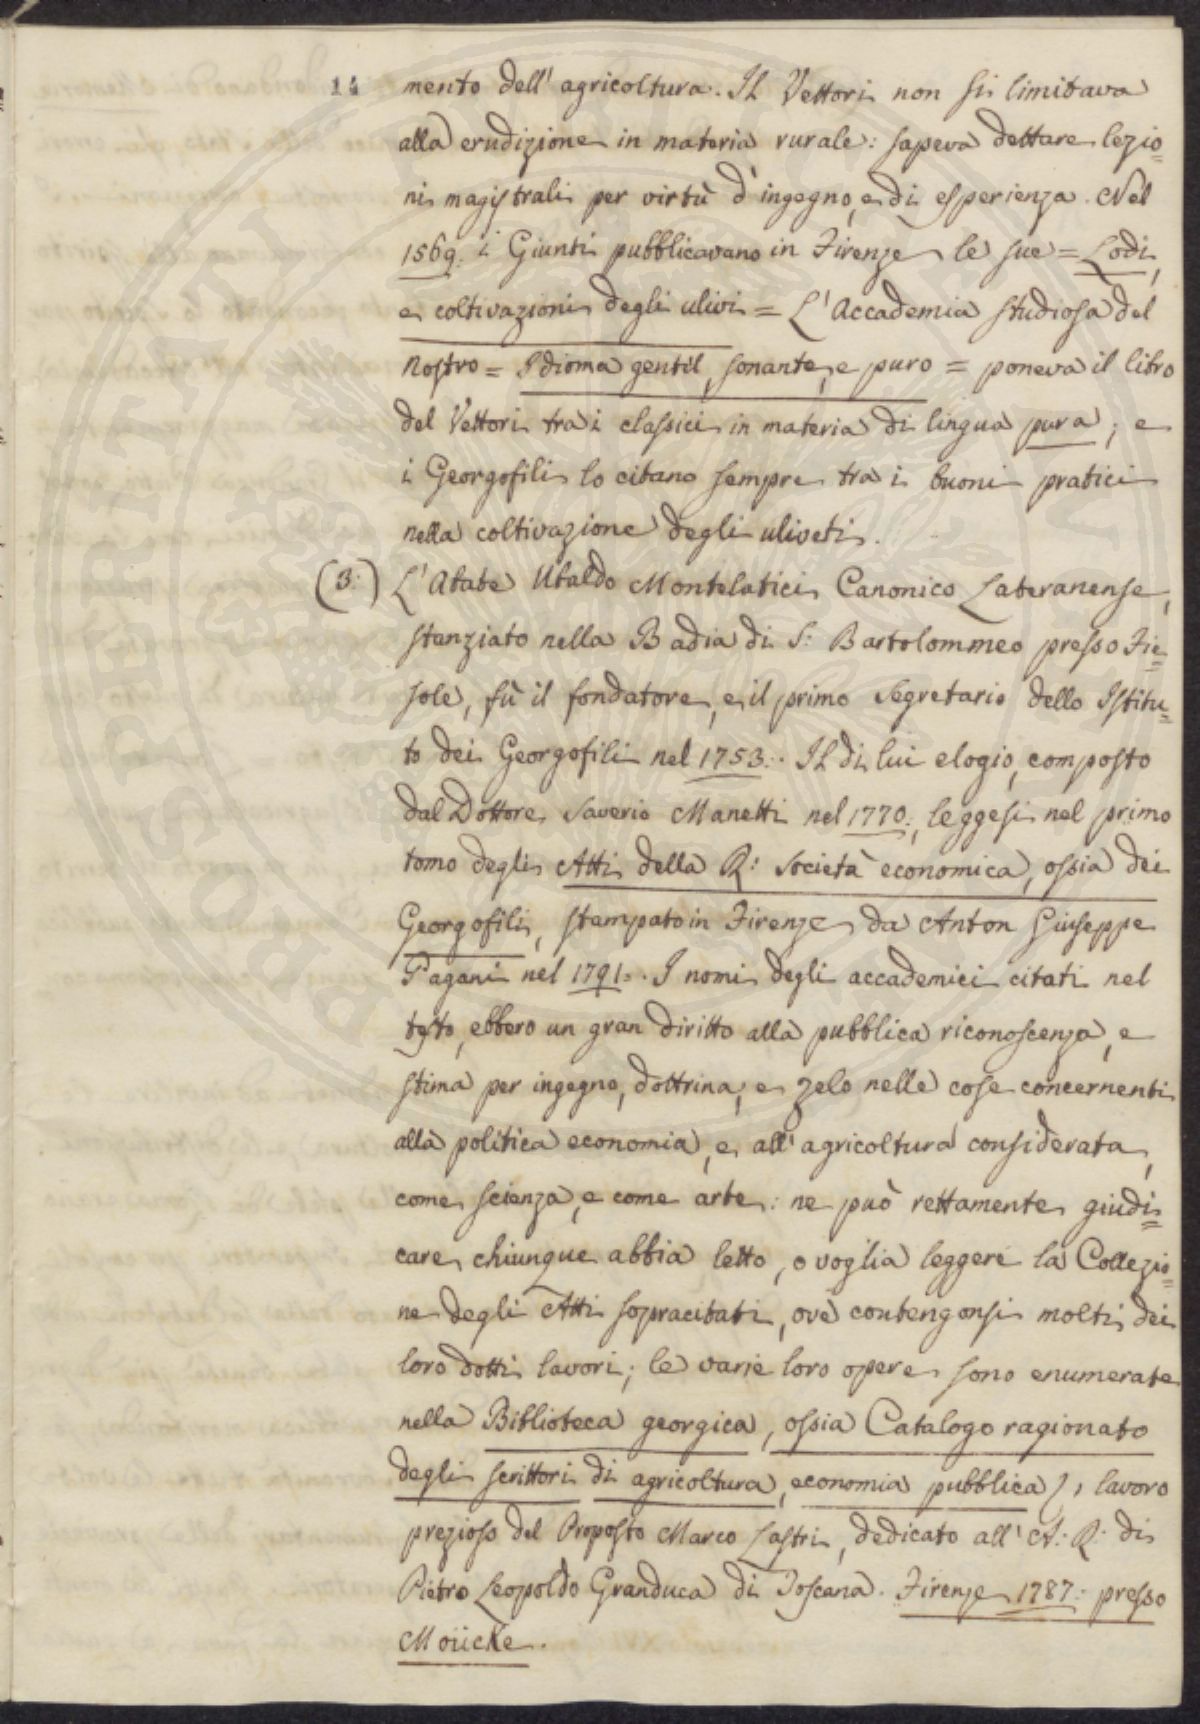 14 mento dell'agricoltura. Il Vettori non si limitava
alla erudizione in materia rurale: sapeva dettare lezio=
ni magistrali per virtù d'ingegno, e di esperienza. Nel
1569. i Giunti pubblicavano in Firenze le sue = Lodi,
e coltivazioni degli ulivi = L'Accademia studiosa del
nostro = Idioma gentil, sonante, e puro = poneva il libro
del Vettori tra i classici in materia di lingua pura; e
i Georgofili lo citano sempre tra i buoni pratici
nella coltivazione degli uliveti.
(3:) L'Abate Ubaldo Montelatici Canonico Lateranense,
stanziato nella Badia di S: Bartolommeo presso Fie=
sole, fù il fondatore, e il primo Segretario dello Istitu=
to dei Georgofili nel 1753:. Il di lui elogio, composto
dal Dottore Saverio Manetti nel 1770:, leggesi nel primo
tomo degli Atti della R: Società economica, ossia dei
Georgofili, stampato in Firenze da Anton Giuseppe
Pagani nel 1791:. I nomi degli accademici citati nel
testo, ebbero un gran diritto alla pubblica riconoscenza, e
stima per ingegno, dottrina, e zelo nelle cose concernenti
alla politica economia, e all'agricoltura considerata
come scienza, e come arte: ne può rettamente giudi=
care chiunque abbia letto, o voglia leggere la Collezio=
ne degli Atti sopracitati, ove contengonsi molti dei
loro dotti lavori; le varie loro opere sono enumerate
nella Biblioteca georgica, ossia Catalogo ragionato
degli scrittori di agricoltura, economia pubblica), lavoro
prezioso del Proposto Marco Lastri, dedicato all'A: R: di
Pietro Leopoldo Granduca di Toscana. Firenze 1787: presso
Moücke.
PROSPERITATI PUBLICAE